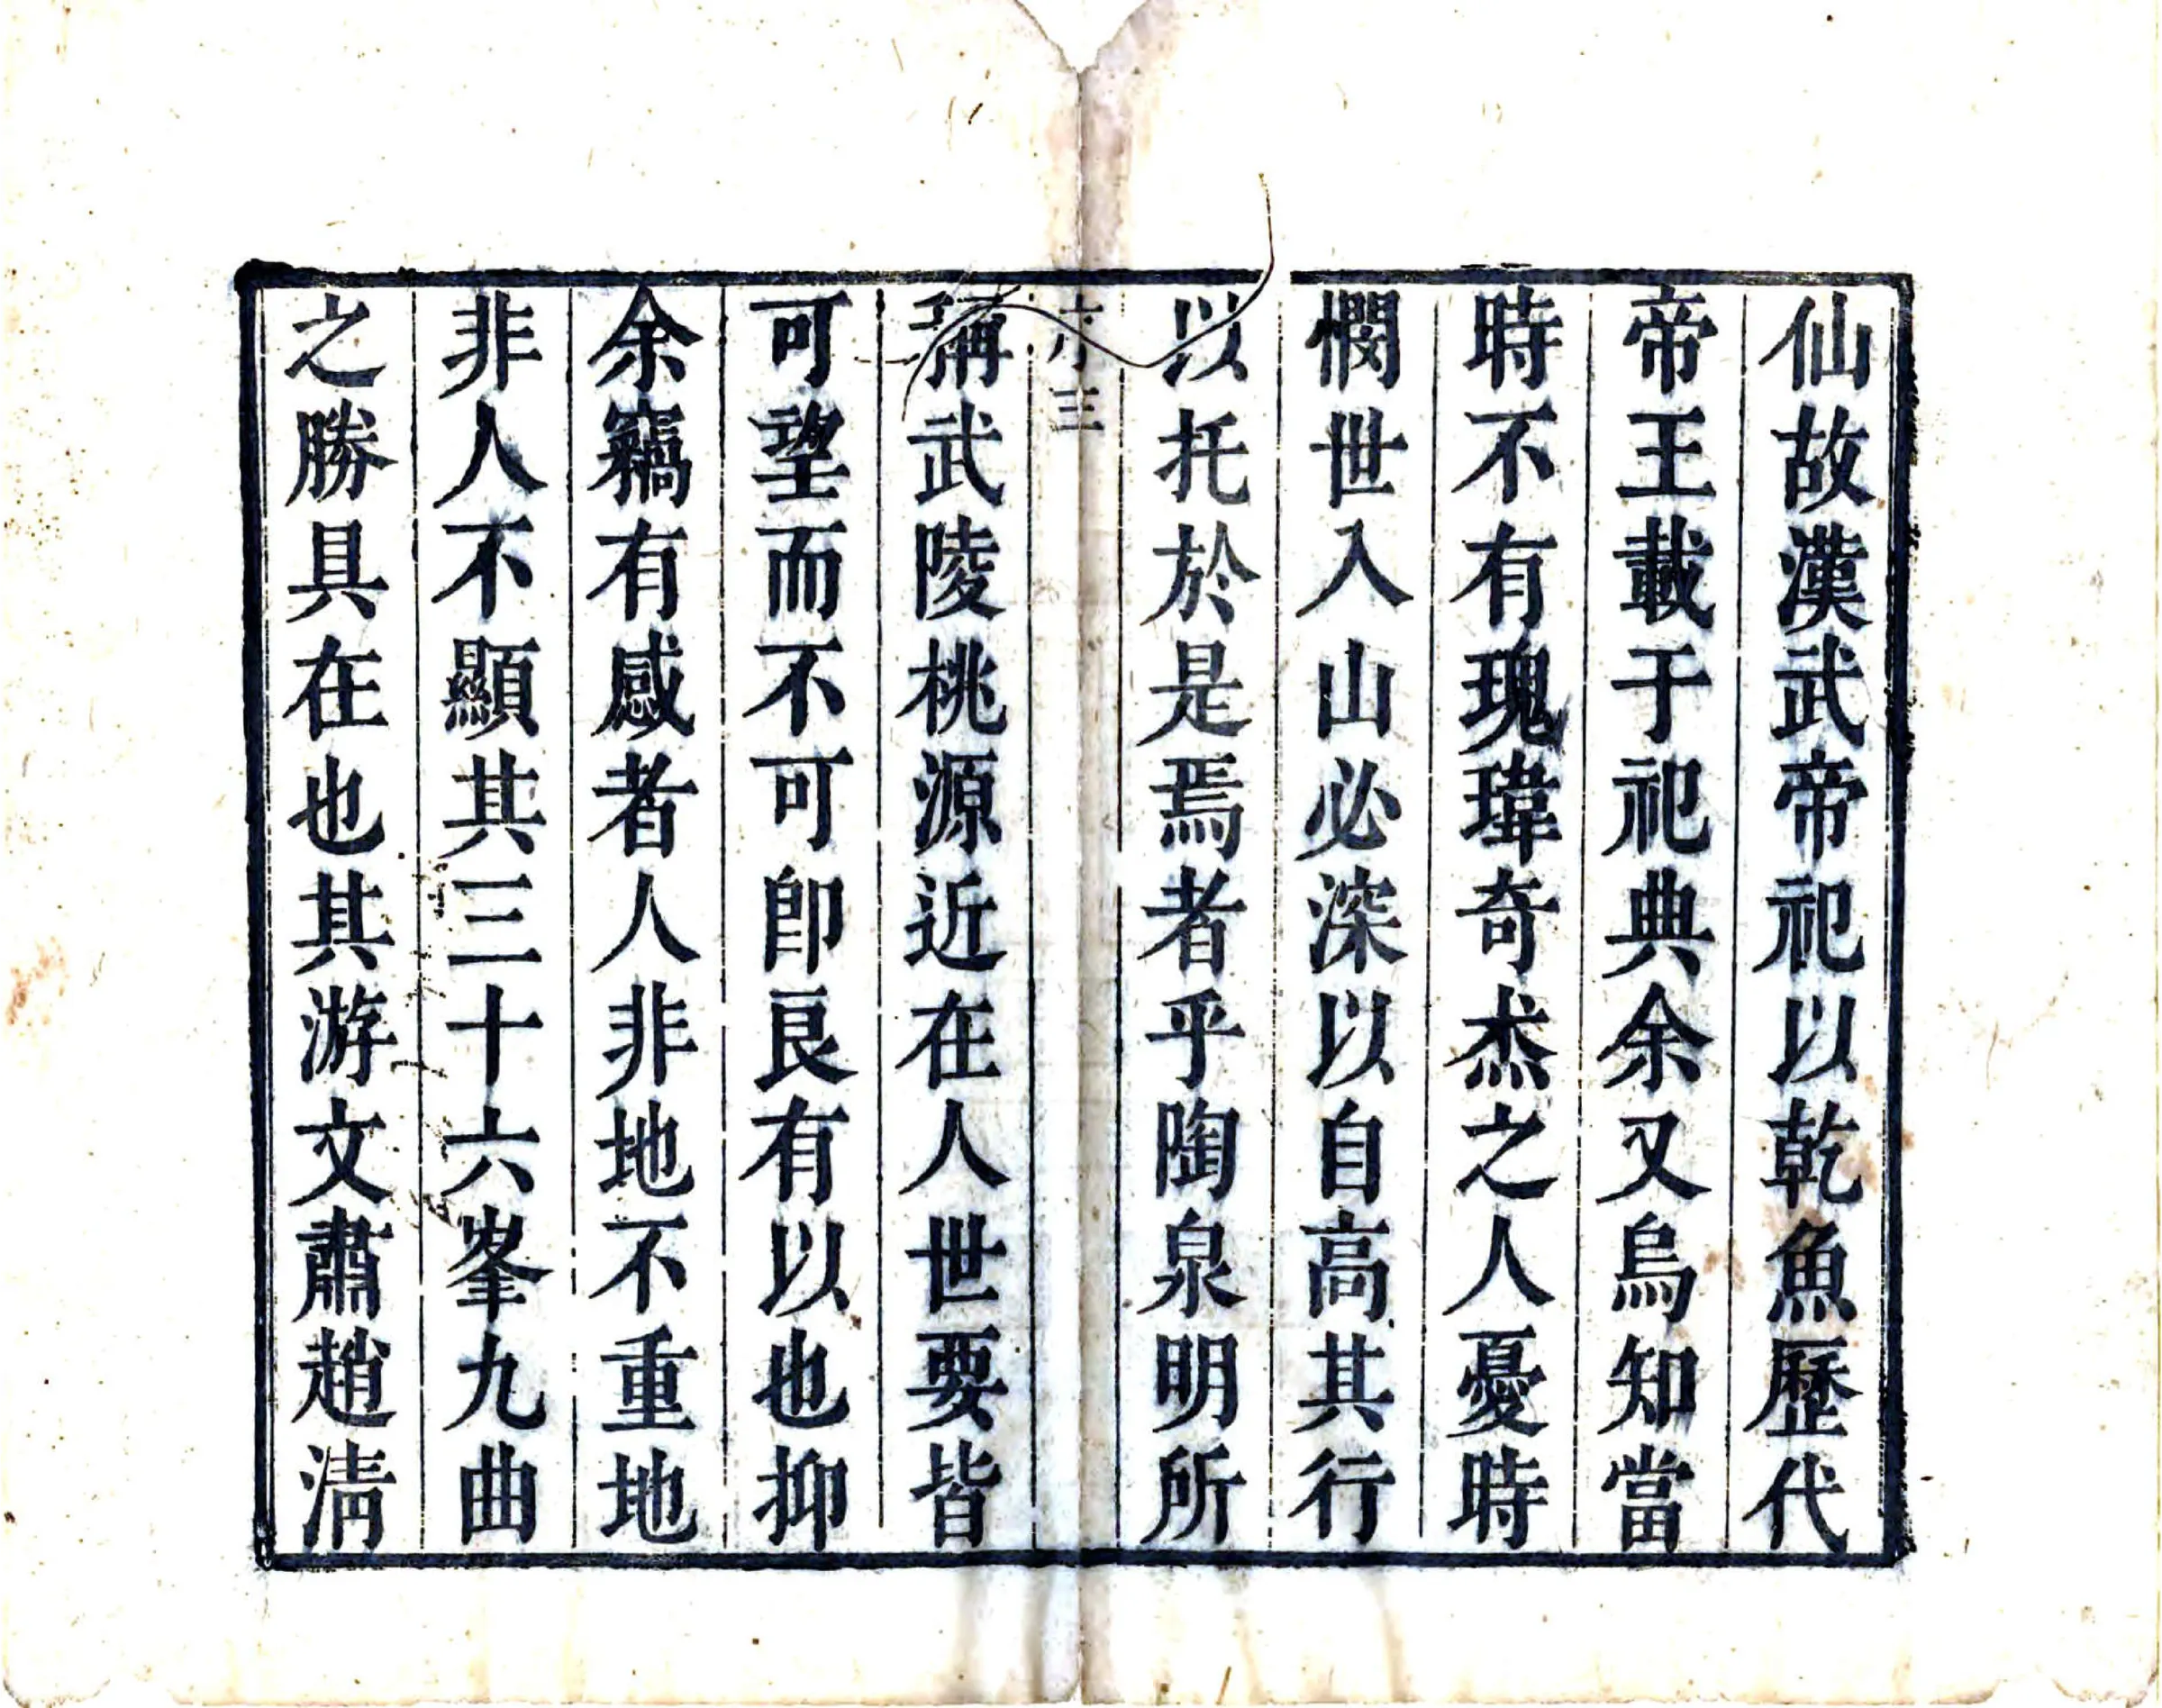 仙故漢武帝祀以乾魚歷代
帝王載于祀典余又烏知當
時不有瑰瑋奇烋之人憂時
憫世入山必深以自高其行
以托於是焉者乎陶泉明所
稱武陵桃源近在人世要皆
可望而不可卽良有以也抑
余竊有感者人非地不重地
非人不顯其三十六峯九曲
之勝具在也其游文肅趙淸